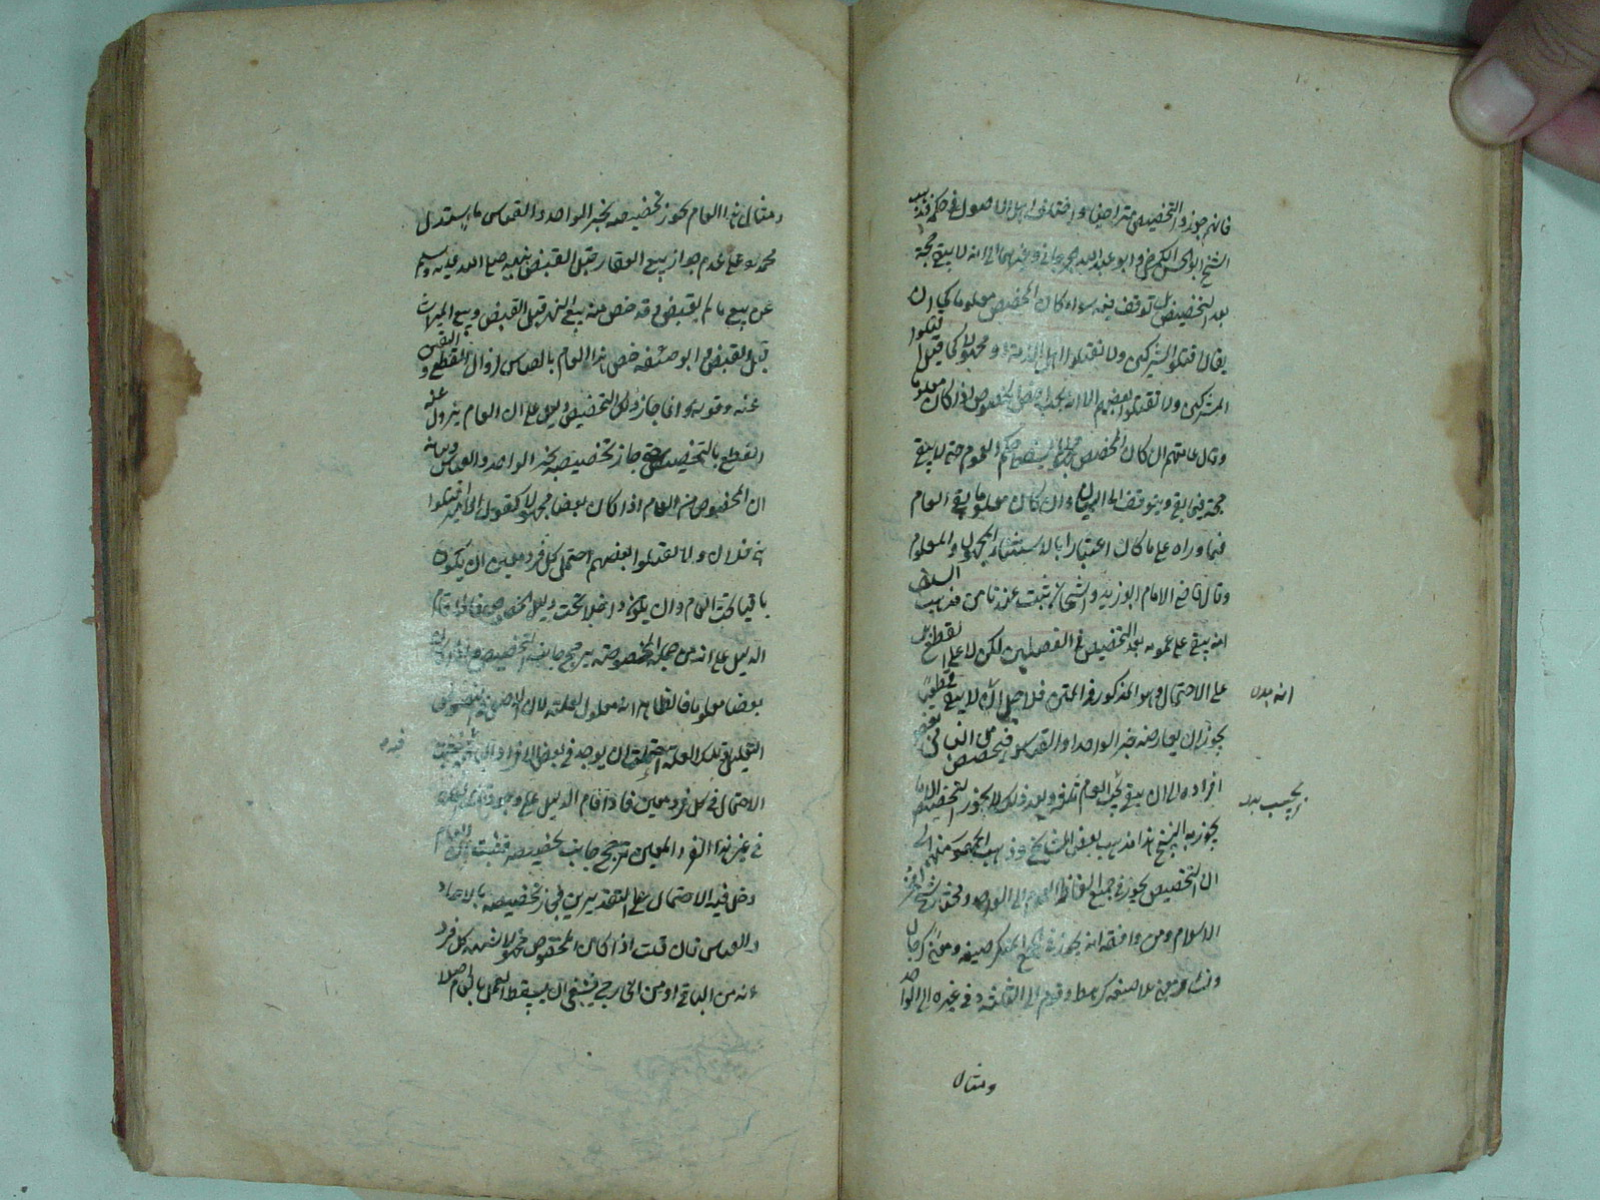 فانهم جوزوا التخصيص متراخيا واختلف اهل الاصول في حكمه فذهب
الشيخ ابو الحسن الكرخي وابو عبد الله الجرجاني وغيرهما الى انه لا يبقى حجة
بعد التخصيص بل توقف فيه سواء كان المخصص معلوما كما ان
يقال اقتلوا المشركين ولا تقتلوا اهل الذمة او مجهولا كما قيل اقتلوا
المشركين ولا تقتلوا بعضهم الا انه يجب اخص الخصوص اذا كان معلوما
وقال عامتهم ان كان المخصص مجهولا يسقط حكم العموم حتى لا يبقى
حجة فيما بقى ويتوقف الى البيان وان كان معلوما بقى العام
فيما وراه على ما كان اعتبارا بالاستثناء المجهول والمعلوم
وقال القاضي الامام ابو زيد والذي ثبت عندنا من مذهب السلف
انه يبقى على عمومه بعد التخصيص في الفصلين لكن لا على القطع بل
على الاحتمال وهو المذكور في المتن فلاجل انه لا يبقى قطعيا
يجوز ان يعارضه خبر الواحد او القياس فيخصص من الباقي بعض
افراده الى ان يبقى تحت العام وبعد ذلك لا يجوز التخصيص
يجوز به النسخ هذا مذهب بعض المشايخ وذهب الجمهور منهم الى
ان التخصيص يجوز في جميع الفاظ العموم الى الواحد ومختار شيخ
الاسلام ومن وافقه انه يجوز في الجمع المنكر صيغة ومعنى كرجال
ونساء او معنى بلا صيغة كرهط وقوم الى الثلثة وفي غيره الى الواحد
انه بدل
ومثال
ومثال هذا العام يجوز تخصيصه بخبر الواحد والقياس ما يستدل
محمد على عدم جواز بيع العقار قبل القبض بنهيه صلى الله عليه وسلم
عن بيع ما لم يقبض وقد خص منه بيع الثمن قبل القبض وبيع الميراث
قبل القبض وابو حنيفة خص هذا العام بالقياس لزوال القطع واليقين
عنه وقوله وانما جاز ذلك التخصيص دليل على ان العام يزول عنه
القطع بالتخصيص حتى جاز تخصيصه بخبر الواحد والقياس وبيانه
ان المخصوص من العام اذا كان بعضا مجهولا كقول الامير اقتلوا
بني فلان ولا تقتلوا بعضهم احتمل كل فرد معين ان يكون
باقيا تحت العام وان يكون داخلا تحت دليل الخصوص فاذا قام
الدليل على انه من جملة المخصوص يترجح جانب التخصيص واذا كان
بعضا معلوما فالظاهر انه معلول لعلة لان الاصل في النصوص
التعليل وتلك العلة احتملت ان يوجد في بعض الافراد الباقي فيثبت
الاحتمال في كل فرد معين فاذا قام الدليل على وجود تلك العلة
في غير هذا الفرد المعين ترجح جانب تخصيصه فثبت ان العام
دخل فيه الاحتمال على التقديرين فجاز تخصيصه بالاحاد
والقياس فان قلت اذا كان المخصوص مجهولا اشتبه كل فرد
انه من الباقي او من الخارج فينبغي ان يسقط العمل بالعام اصلا